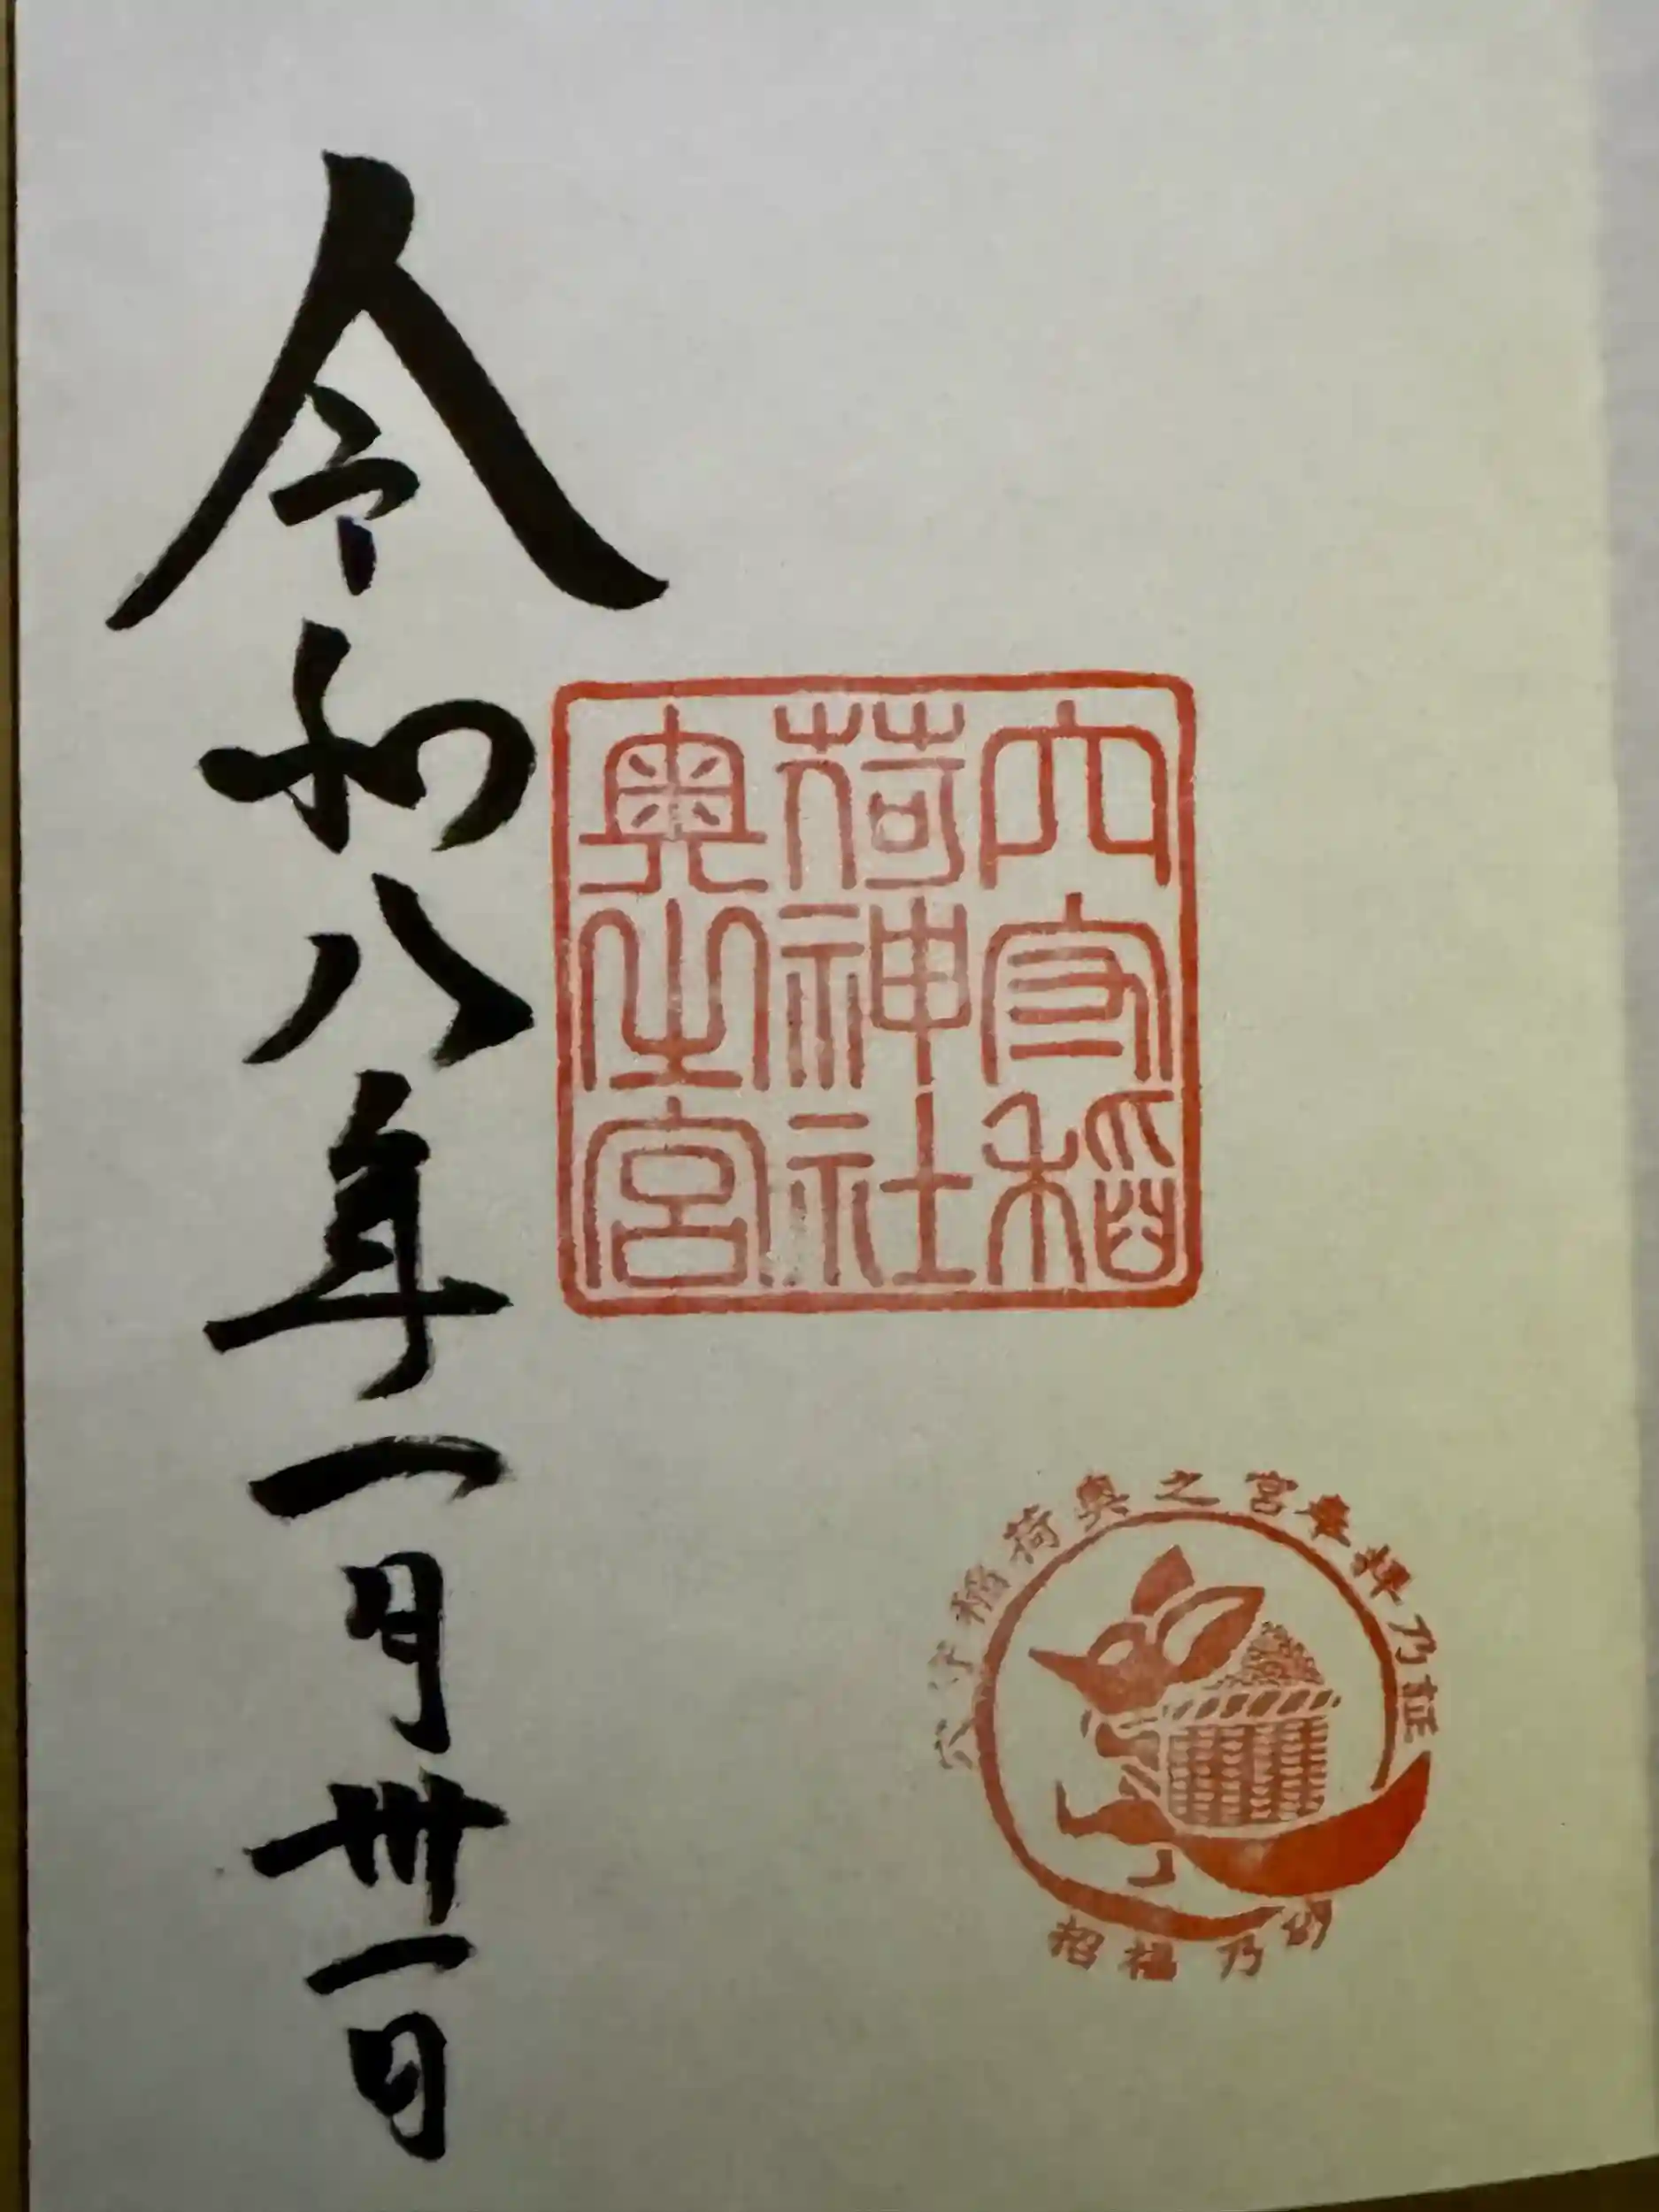 穴守稲
荷神社
奥之宮
穴守稲荷奥之宮奉拝乃証
招福乃砂
令和八年一月卅一日